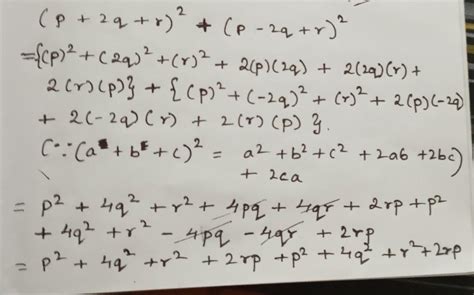 (p + 2q + r)² + (p - 2q + r)²
= {(p)² + (2q)² + (r)² + 2(p)(2q) + 2(2q)(r) +
2(r)(p)} + {(p)² + (-2q)² + (r)² + 2(p)(-2q)
+ 2(-2q)(r) + 2(r)(p)}.
(∵ (a + b + c)² = a² + b² + c² + 2ab + 2bc)
+ 2ca
= p² + 4q² + r² + 4pq + 4qr + 2rp + p²
+ 4q² + r² - 4pq - 4qr + 2rp
= p² + 4q² + r² + 2rp + p² + 4q² + r² + 2rp